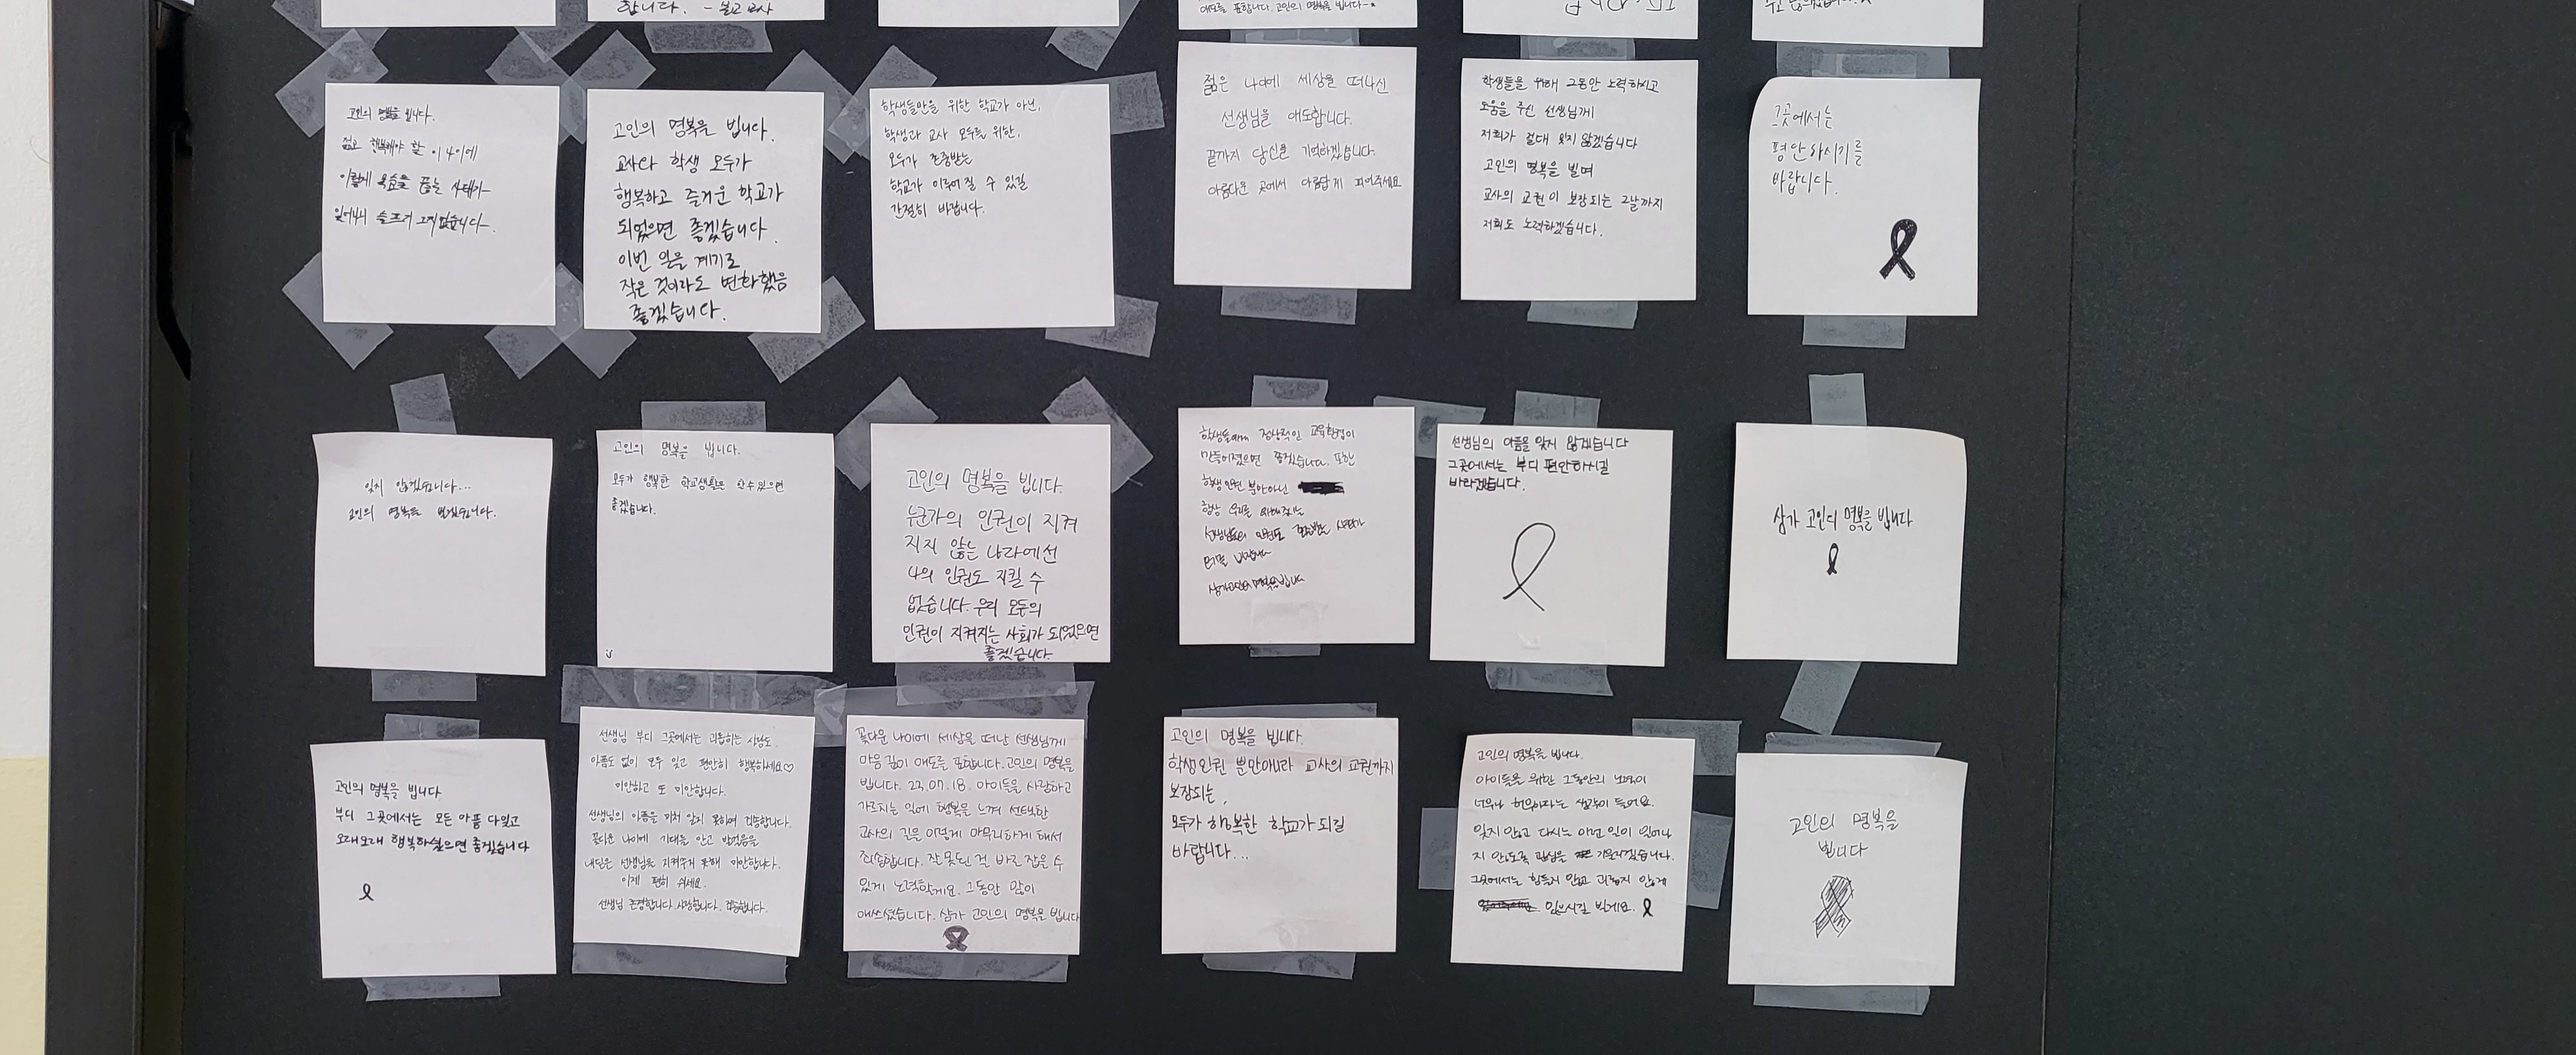 합니다. - 불교 교사
애도를 표합니다. 고인의 명복을 빕니다
고인의 명복을 빕니다.
젊고 행복해야 할 이 나이에
이렇게 목숨을 끊는 사태가
일어나니 슬프기 그지없습니다.
고인의 명복을 빕니다.
교사와 학생 모두가
행복하고 즐거운 학교가
되었으면 좋겠습니다.
이번 일을 계기로
작은 것이라도 변화했음
좋겠습니다.
학생들만을 위한 학교가 아닌,
학생과 교사 모두를 위한,
모두가 존중받는
학교가 이루어 질 수 있길
간절히 바랍니다.
젊은 나이에 세상을 떠나신
선생님을 애도합니다.
끝까지 당신을 기억하겠습니다.
아름다운 곳에서 아름답게 피어주세요
학생들을 위해 그동안 노력하시고
도움을 주신 선생님께
저희가 절대 잊지 않겠습니다
고인의 명복을 빌며
교사의 교권이 보장되는 그날까지
저희도 노력하겠습니다.
그곳에서는
평안하시기를
바랍니다.
잊지 않겠습니다...
고인의 명복을 빌겠습니다.
고인의 명복을 빕니다.
모두가 행복한 학교생활을 할 수 있으면
좋겠습니다.
고인의 명복을 빕니다.
누군가의 인권이 지켜
지지 않는 나라에선
나의 인권도 지킬 수
없습니다. 우리 모두의
인권이 지켜지는 사회가 되었으면
좋겠습니다.
정상적인 교육환경이
만들어졌으면 좋겠습니다. 또한
학생인권 뿐만아닌
항상 우리를
선생님들의 인권도 존중받는
삼가고인의명복을빕니다
선생님의 아픔을 잊지 않겠습니다
그곳에서는 부디 편안하시길
바라겠습니다.
삼가 고인의 명복을 빕니다
고인의 명복을 빕니다
부디 그곳에서는 모든 아픔 다잊고
오래오래 행복하셨으면 좋겠습니다
선생님 부디 그곳에서는 괴롭히는 사람도,
아픔도 없이 모두 잊고 편안히 행복하세요♡
미안하고 또 미안합니다.
선생님의 아픔을 미처 알지 못하여 죄송합니다.
꽃다운 나이에 기대를 안고 발걸음을
내딛은 선생님을 지켜주지 못해 미안합니다.
이제 편히 쉬세요.
선생님 존경합니다. 사랑합니다. 죄송합니다.
꽃다운 나이에 세상을 떠난 선생님께
마음 깊이 애도를 표합니다. 고인의 명복을
빕니다. 23.07.18. 아이들을 사랑하고
가르치는 일에 행복을 느껴 선택한
교사의 길을 이렇게 마무리하게 해서
죄송합니다. 잘못된 걸 바로 잡을 수
있게 노력할게요. 그동안 많이
애쓰셨습니다. 삼가 고인의 명복을 빕니다
고인의 명복을 빕니다.
학생인권 뿐만아니라 교사의 교권까지
보장되는,
모두가 행복한 학교가 되길
바랍니다...
고인의 명복을 빕니다.
아이들을 위한 그동안의 노력이
너무나 허무하다는 생각이 들어요.
잊지 않고 다시는 이런 일이 일어나
지 않도록 관심을 기울이겠습니다.
그곳에서는 힘들지 않고 괴롭지 않게
있으시길 빌게요.
고인의 명복을
빕니다